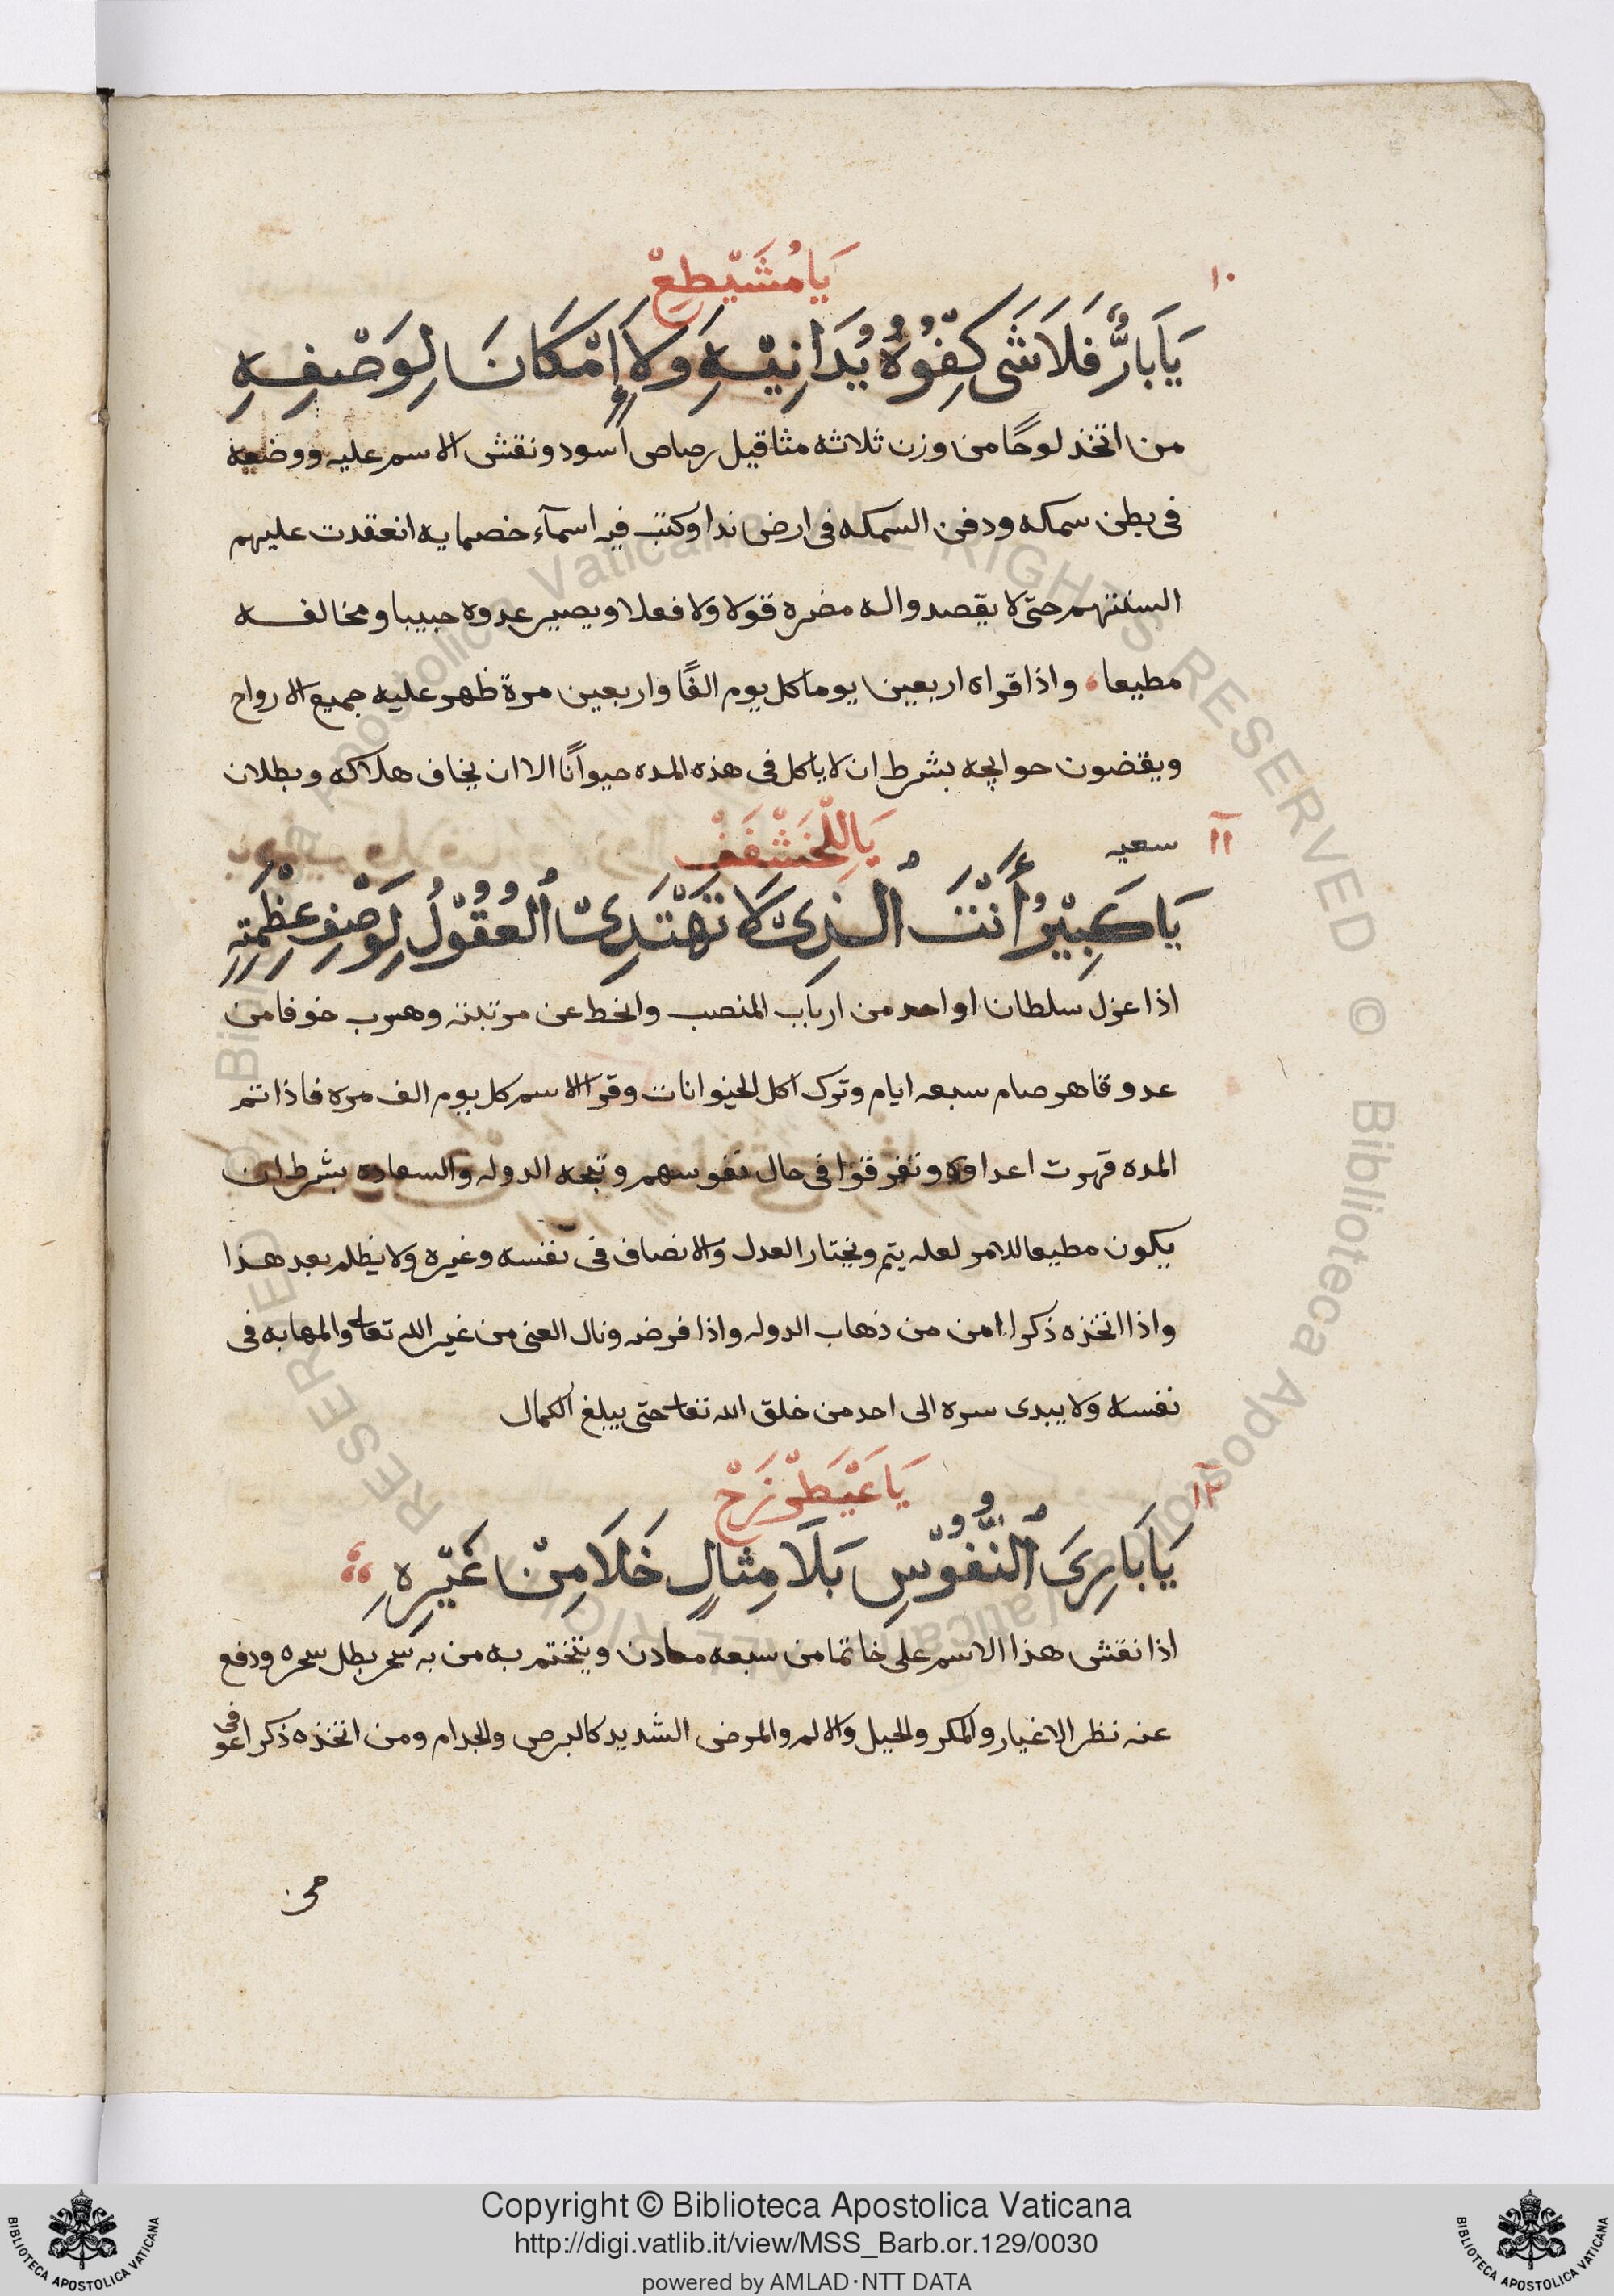 ١٠
يَا مُشَيْطِعْ
يَا بَارُّ فَلَا شَى كِفْوُهُ يُدَانِيْهِ وَلَا إِمْكَانَ لِوَصْفِهِ
من اتخذ لوحًا من وزن ثلاثه مثاقيل رصاص اسود ونقش الاسم عليه ووضعه
فى بطن سمكه ودفن السمكه فى ارض ندا وكتب فيه اسمآء خصمايه انعقدت عليهم
السنتهم حتى لا يقصدوا له مضره قولا ولا فعلا ويصير عدوه حبيبا ومخالفه
مطيعا واذا قراه اربعين يوما كل يوم الفًا واربعين مرة ظهر عليه جميع الارواح
ويقضون حوايجه بشرط ان لا ياكل فى هذه المده حيوانًا الا ان يخاف هلاكه وبطلان
سعيه
١١
يَا لِلْخَشْفَفْ
يَا كَبِيْرُ أَنْتَ ٱلَّذِىْ لَا تَهْتَدِىْ ٱلْعُقُوْلُ لِوَصْفِ عِظْمَتِهِ
اذا عزل سلطان او احد من ارباب المنصب وانخط عن مرتبته وهرب خوفا من
عدو قاهر صام سبعه ايام وترك اكل الحيوانات وقرا الاسم كل يوم الف مره فاذا تم
المده قهرت اعداوه وتفرقوا فى حال نفوسهم وتجه الدوله والسعاده بشرط ان
يكون مطيعا للامر لعله يتم ويختار العدل والانصاف فى نفسه وغيره ولا يظلم بعد هذا
واذا اتخذه ذكرا امن من ذهاب الدوله واذا فرضه ونال الغنى من غير الله تعالى والمهابه فى
نفسه ولا يبدى سره الى احد من خلق الله تعالى حتى يبلغ الكمال
١٢
يَا عَيْطَىْ نَرَخْ
يَا بَارِىَ ٱلنُّفُوْسِ بَلَا مِثَالٍ خَلَا مِنْ غَيْرِهِ
اذا نقش هذا الاسم على خاتما من سبعه معادن ويتختم به من به سحر بطل سحره ودفع
عنه نظر الاغيار والمكر والحيل والالم والمرض الشديد كالبرص والجدام ومن اتخذه ذكرا عوفى
من
Copyright © Biblioteca Apostolica Vaticana
http://digi.vatlib.it/view/MSS_Barb.or.129/0030
powered by AMLAD·NTT DATA